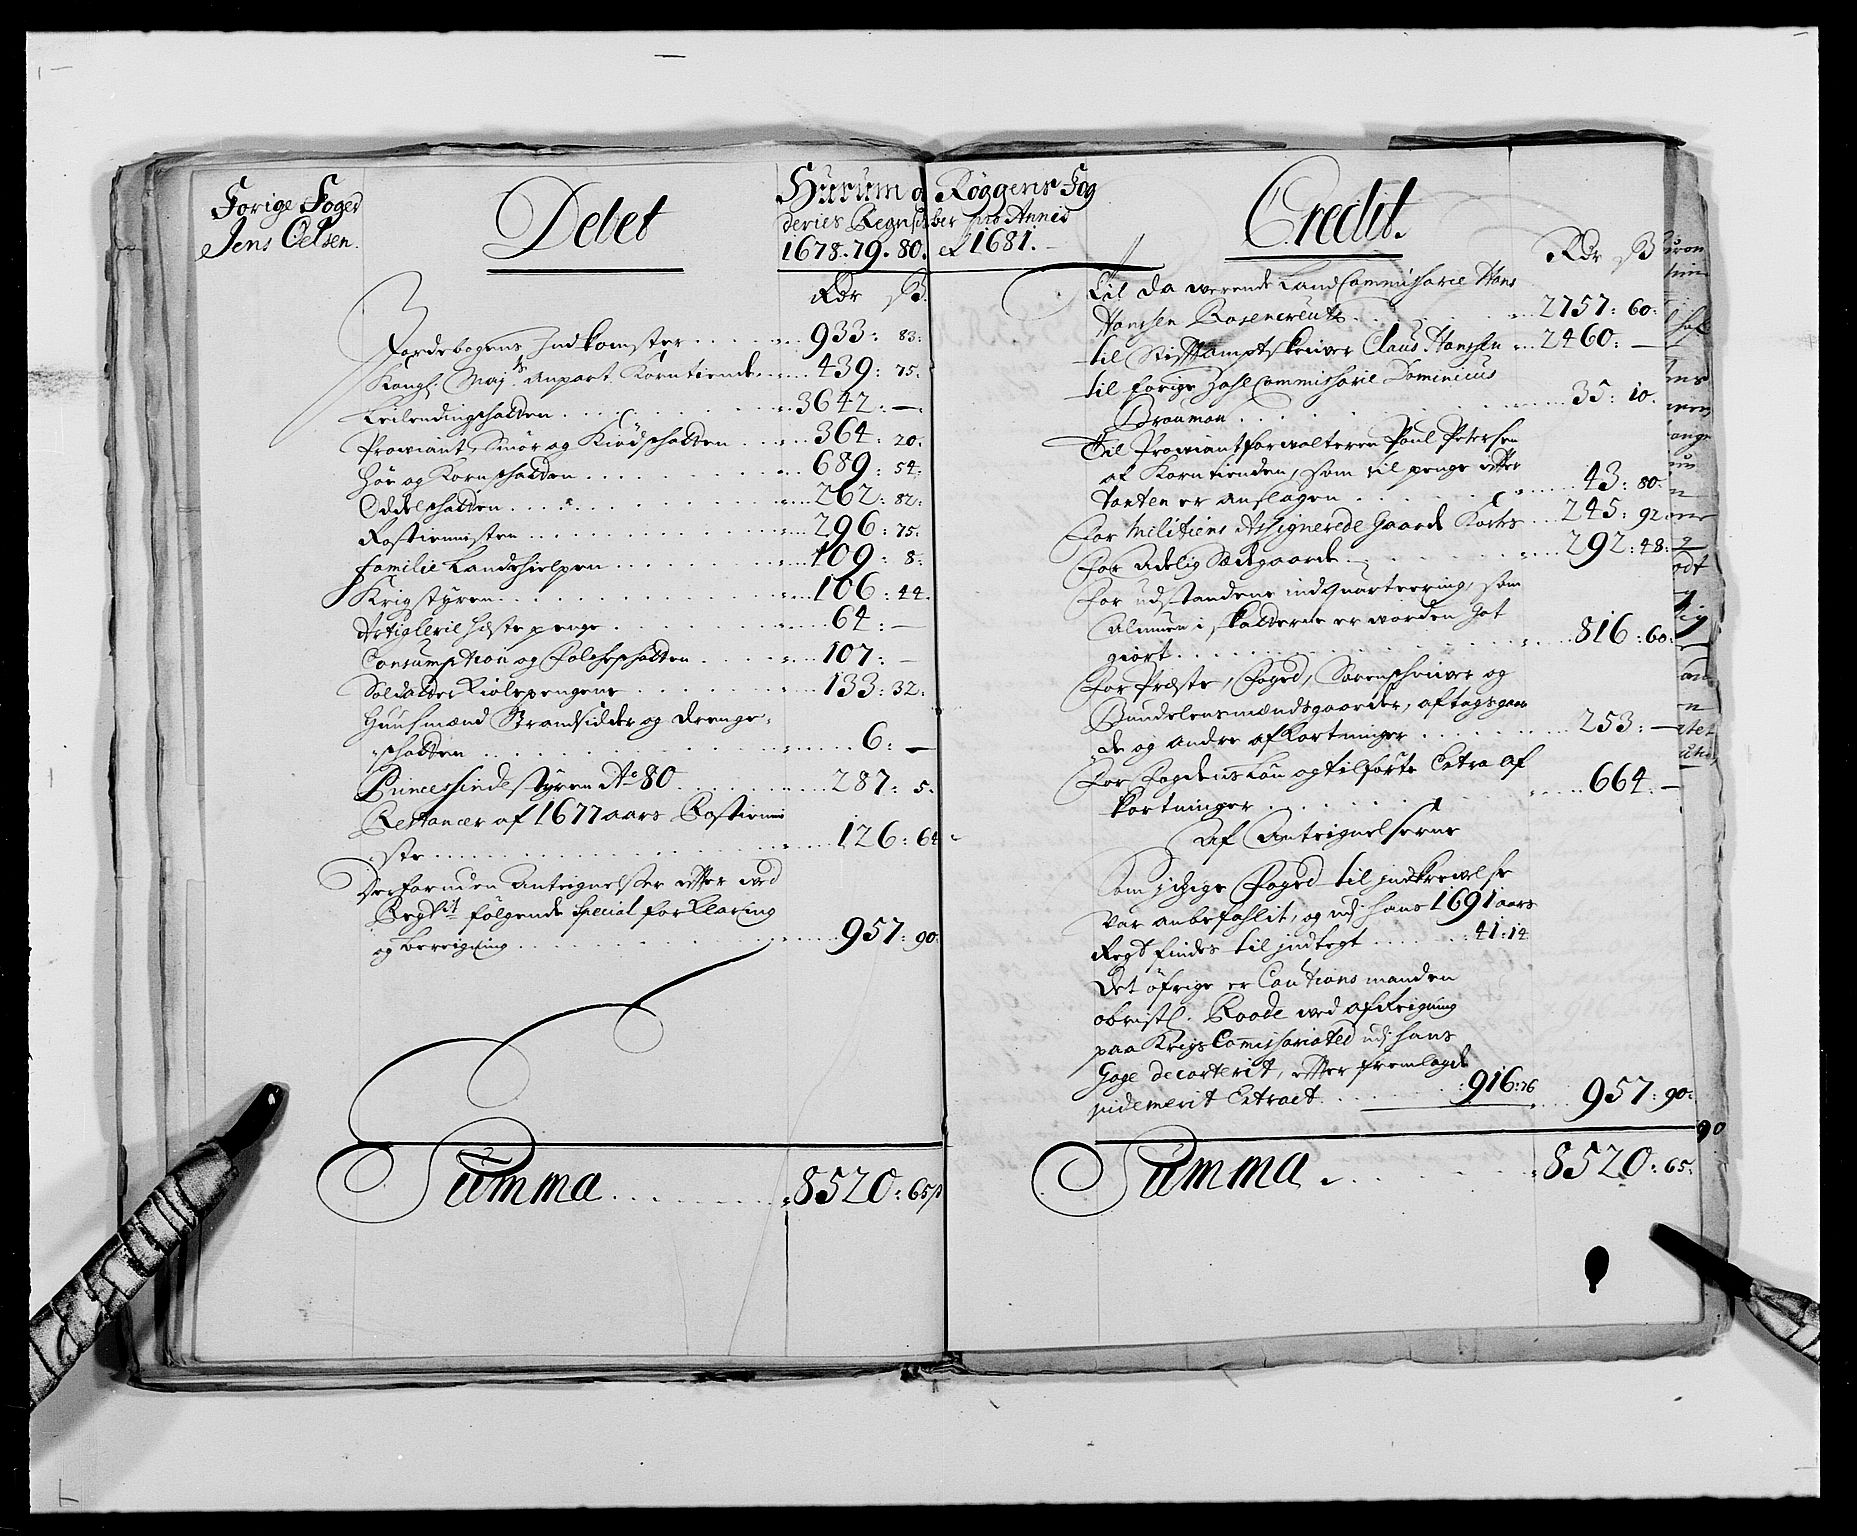 Forige Foged
Jens Oelsen.
Debet
Hurum o Røggens Fog
deries Regnskber pro Annis
1678. 79. 80. et 1681.
Rdr ß.
Jordebogens Indkomster . . . . 933: 83:
Kongl. Maj.ts Anpart Korntiende . . . 439: 75.
Leilendingschatten . . . . 3642: —
Proviant, Smör og Kiödschatten . . . 364: 20:
Höe og Kornschatten . . . . 689: 54:
Oddelschatten . . . . 262: 82:
Rostienisten . . . . 296: 75:
Familie Landehielpen . . . . 109: 8:
Krigstyren . . . . 106: 44.
Artiglerie Hestepenge . . . . 64: —
Consumption og Folcheschatten . . . . 107: —
Soldatter Kiolepengene . . . . 133: 32:
Huusmænd Strandsidder og drenge-
schatten . . . . 6: —
Princessinde styren Ao 80 . . . . 287: 5.
Restancer af 1677 aars Rostienni
ste . . . . 126: 64
Derforuden Anteignelsser efter ved
Regsk: følgende Special forklaring
og beregning . . . . 957: 90:
Summa . . . . 8520: 65ß
Credit.
Rdr ß
Til da werende Land Commissarie Hans
Hanssen Rosencreutz . . . . 2757: 60:
til Stifftamptskriver Claus Hanssen . . 2460: —
til forige Zahl Commissarie Dominicus
Brouman . . . . 35: 10.
Til Proviantforvalteren Poul Petersen
af Korntienden, som til penge efter
taxten er anslagen . . . . 43: 80:
For Militiens Assignerede Gaarde Korts . . . 245: 92
For Adelig Sædegaarde . . . . 292: 48:
For udstandene indquarteering, som
Almuen i skatterne er worden got
giort . . . . 816: 60:
For Præste, Foged, Sorenschriver og
Bundelensmændsgaarder, aftagsgaar
de og andre afkortninger . . . . 253: —
For Fogdens Løn og tilførte Extra Af
kortninger . . . . 664. —
Af Anteignelserne
Som ihige Foged til indkrevelse
var anbefahlit, og udj hans 1691 aars
Regsk findes til indtegt . . . . : 41: 14
Det öfrige er Cautions manden
obristl. Roode ved afreigning
paa Krigs Commissariated udj hans
Gage decorterit, efter fremlagde
videmerit Extract . . . . : 916: 76 . . . 957: 90:
Summa . . . . 8520: 65.
90